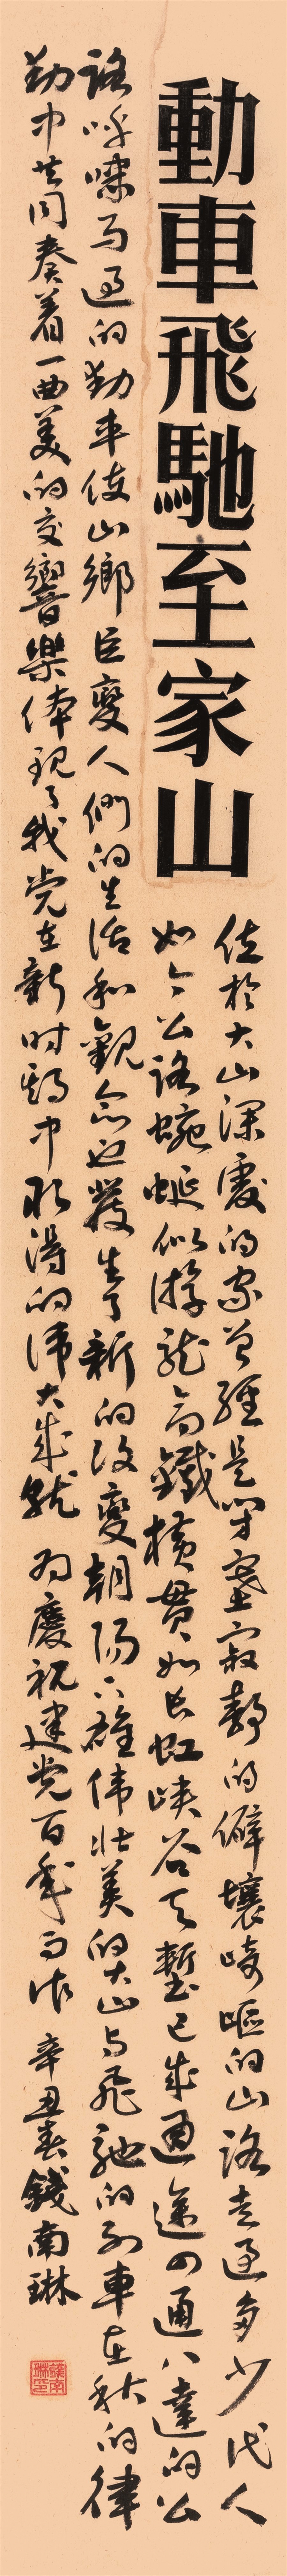 動車飛馳至家山
位於大山深處的家曾經是閉塞寂靜的僻壤崎嶇的山路走過多少代人
如今公路蜿蜒似游龍高鐵橫貫如長虹峽谷天塹已成通途四通八達的公
路呼嘯而過的動車使山鄉巨變人們的生活和觀念也發生了新的改變朝陽下雄偉壯美的大山與飛馳的列車在秋的律
動中共同奏着一曲美的交響樂体現了我党在新时期中取得的偉大成就 为慶祝建党百年而作 辛丑春錢南琳
錢南琳印